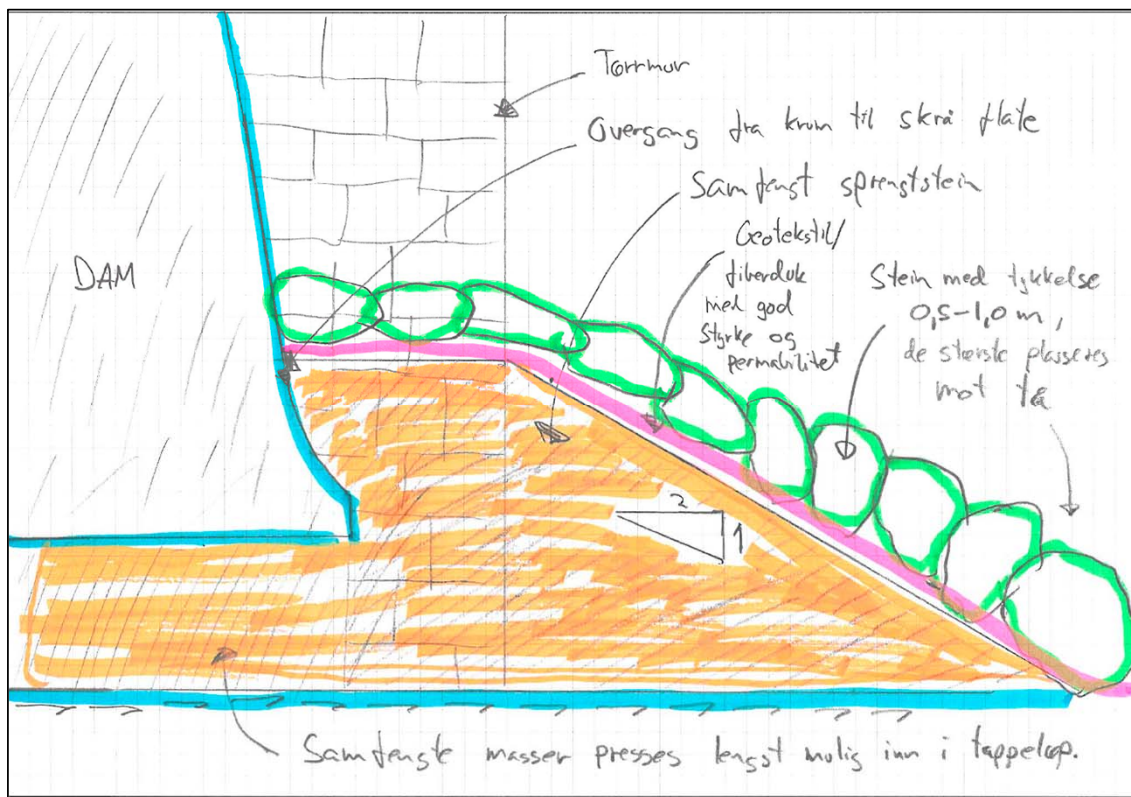 Tørrmur
Overgang fra krum til skrå flate
Samfengt sprengtstein
Geotekstil/
fiberduk
med god
styrke og
permabilitet
DAM
Stein med tykkelse
0,5-1,0 m,
de største plasseres
mot tå
2
1
Samfengte masser presses lengst mulig inn i tappeløp.